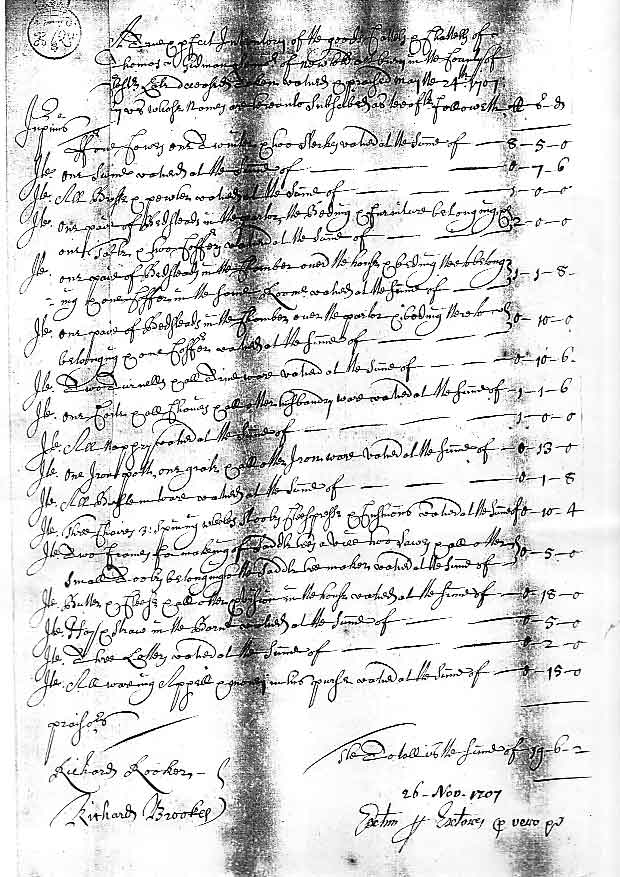 A true & perfect Inventory of the goods Cattells & Chattells of
Thomas late of in the County of
deceased taken valued & praised May the 24th 1707
by us whose names are hereunto Subscribed as hereafter followeth ll s d
Inpimis
three Cowes one & two Sterkes valued at the Sume of 8-5-0
Ite one Swine valued at the Sume of 0-7-6
Ite All Brass & pewter valued at the Sume of 1-0-0
Ite one paire of Bedsteads in the parlor the Beding & furniture belonging
one Table & two Coffers valued at the Sume of 2-0-0
Ite one paire of Bedsteads in the Chamber over the house & beding there belong
=ing & one Coffer in the same Roome valued at the Sume of 1-1-8
Ite one paire of Bedsteads in the Chamber over the parlor & beding thereunto
belonging & one Coffer valued at the Sume of 0-10-0
Ite Two Turnells & all Treene ware valued at the Sume of 0-10-6
Ite one Cart & all other husbandry ware valued at the Sume of 1-1-6
Ite All Nappry valued at the Sume of 1-0-0
Ite one Iron pott one grate & all other Iron ware valued at the Sume of 0-13-0
Ite All ware valued at the Sume of 0-1-8
Ite three Chaires 3: Spining wheeles Stooles & Cushions valued at the Sume of 0-10-4
Ite two frames for makeing of Saddle trees a vice two Sawes & all other
small tooles belonging to the Saddle tree maker valued at the Sume of 0-5-0
Ite Butter & Cheese & all other provision in the house valued at the Sume of 0-18-0
Ite Hay & Straw in the Barne valued at the Sume of 0-5-0
Ite three valued at the Sume of 0-2-0
Ite All wareing Appell & money in his purse valued at the Sume of 0-15-0
praisers
The totall is the Sume of 19-6-2
Richard Rooker
Richard Brookes
26 - Nov. 1707